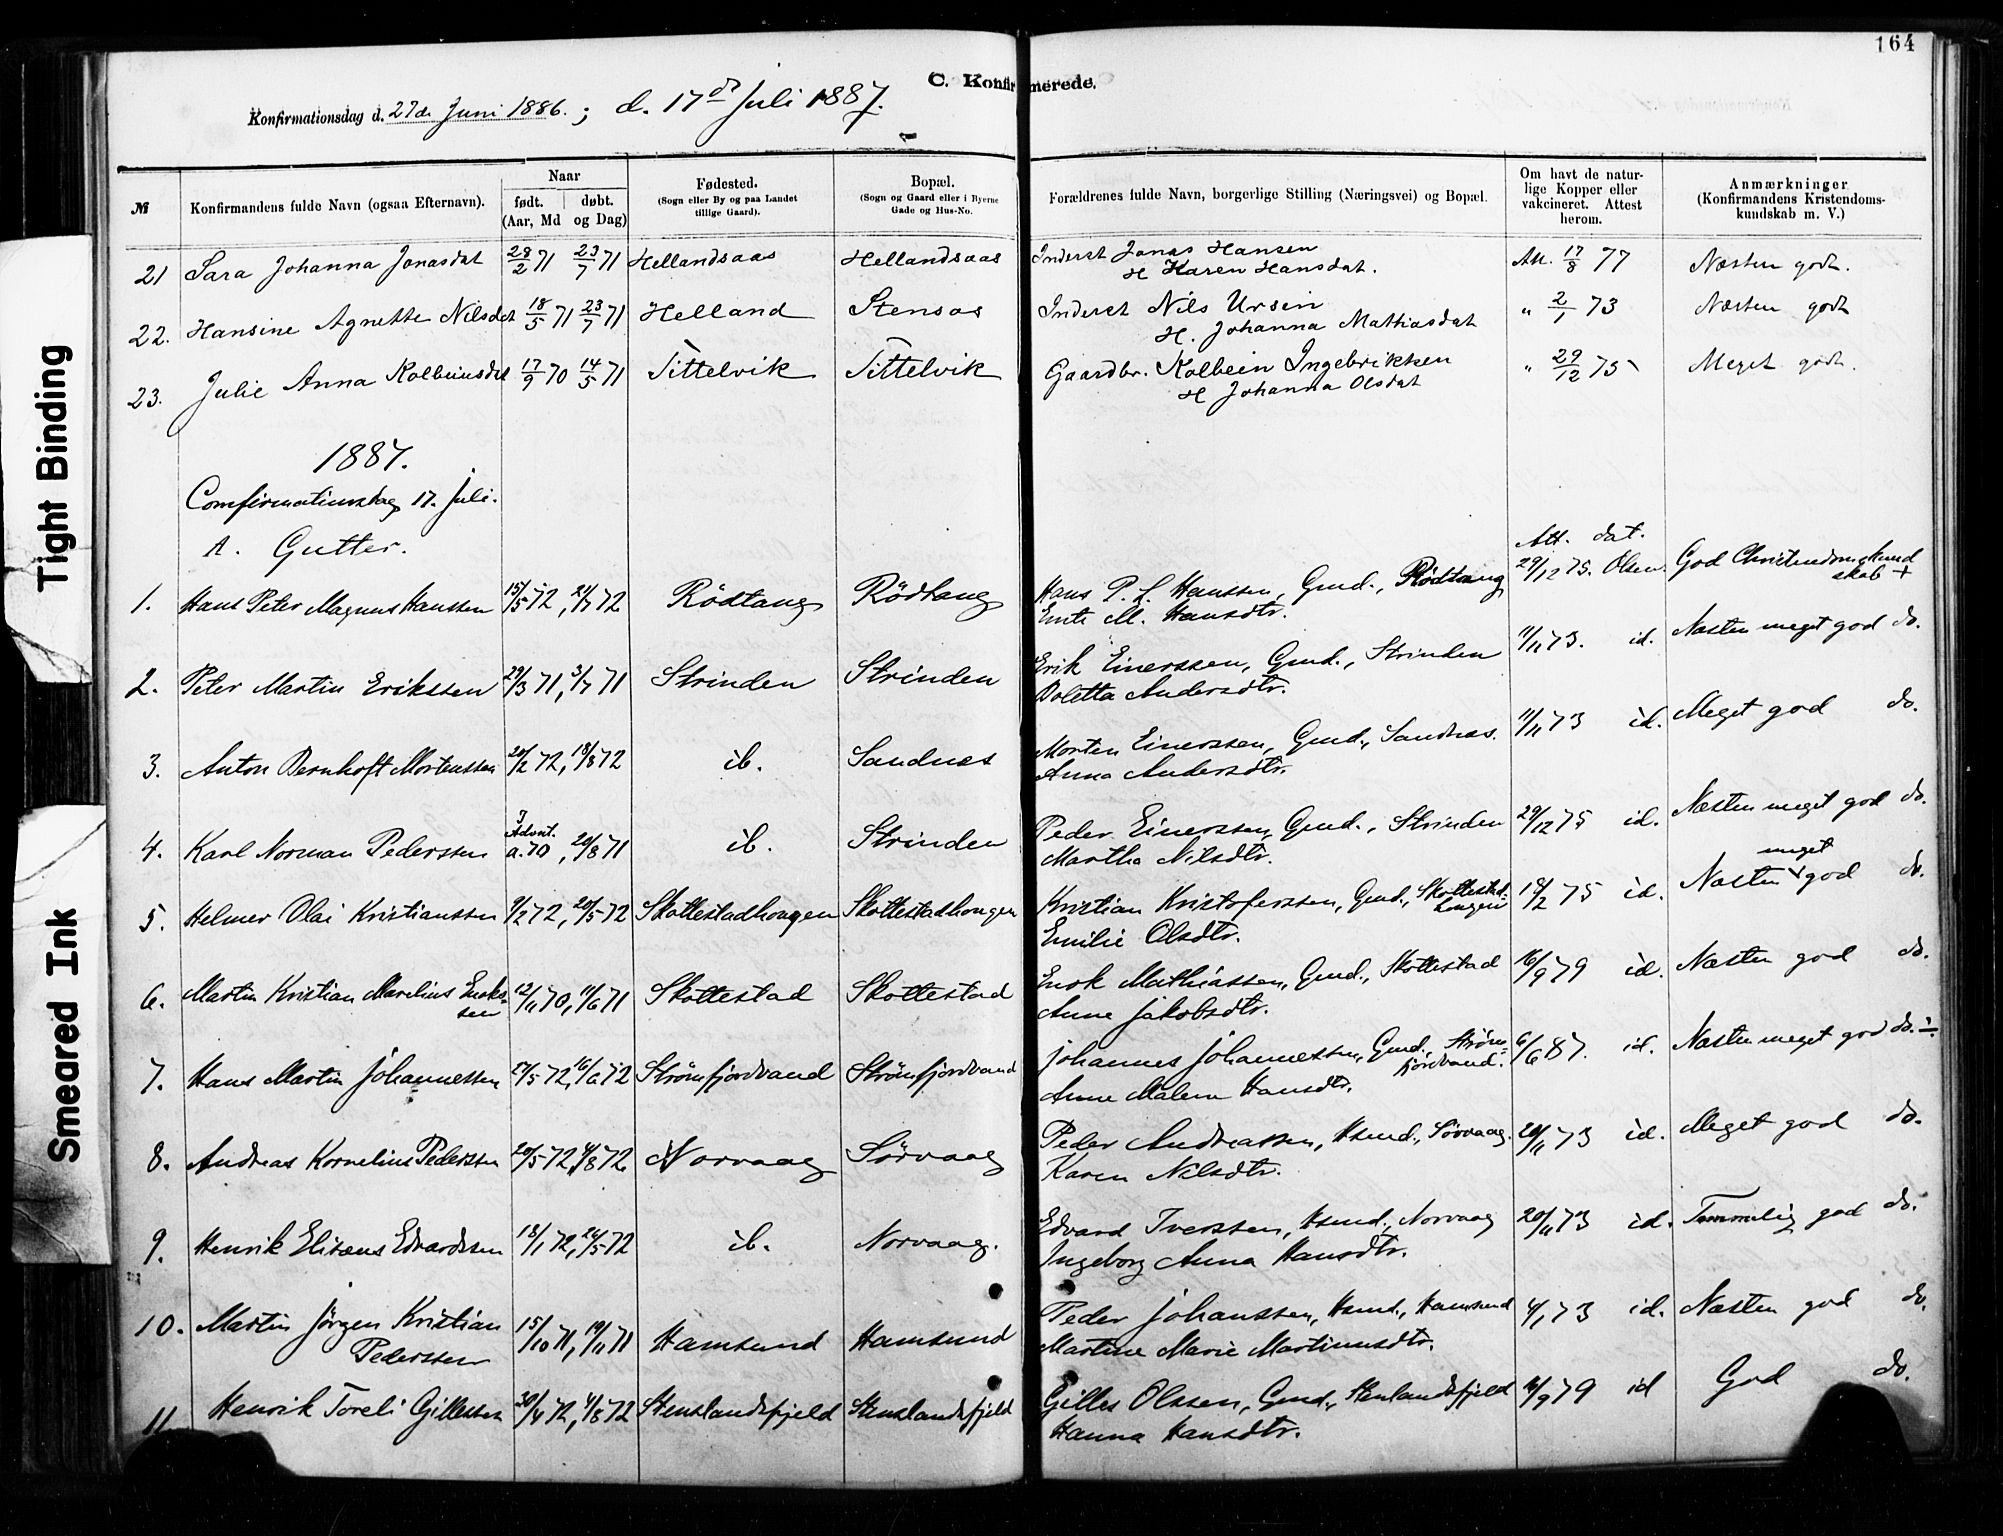 164
C. Konfirmerede.
Konfirmationsdag d. 27de Juni 1886. ; d. 17de Juli 1887.
№ Konfirmandens fulde Navn (ogsaa Efternavn). Naar født. døbt. (Aar, Md og Dag) Fødested. (Sogn eller By og paa Landet tillige Gaard). Bopæl. (Sogn og Gaard eller i Byerne Gade og Hus-No. Forældrenes fulde Navn, borgerlige Stilling (Næringsvei) og Bopæl. Om havt de naturlige Kopper eller vakcineret. Attest herom. Anmærkninger (Konfirmandens Kristendomskundskab m. V.)
21 Sara Johanna Jonasdat 28/2 71 23/7 71 Hellandsaas Hellandsaas Inderst Jonas Hansen Att. 17/8 77 Næsten godt.
H Karen Hansdat.
22. Hansine Agnette Nilsdat 18/5 71 23/7 71 Helland Stensås Inderst Nils Ursin " 2/1 73 Næsten godt
H. Johanna Mathiasdat
23. Julie Anna Kolbeinsdat 17/9 70 14/5 71 Tittelvik Tittelvik Gaardbr. Kolbein Ingebriktsen " 29/12 75 Meget godt.
H Johanna Olsdat
1887.
Comfirmationsdag 17. Juli.
A. Gutter.
Att. dat.
1. Hans Peter Magnus Hanssen 15/5 72, 21/7 72 Rödtang Rödtang Hans P. L. Hanssen, Gmd., Rödtang 29/12 75. Olsen God Christendomskund
skab +
M. Hansdtr.
2. Peter Martin Erikssen 29/3 71, 3/7 71 Strinden Strinden Erik Einerssen, Gmd., Strinden 11/11 73. id. Næsten meget god do.
Doletta Andersdtr.
3. Anton Bernhoft Mortenssen 20/2 72, 18/8 72 ib. Sandnes Morten Einerssen, Gmd., Sandnæs. 11/11 73 id. Meget god do.
Anna Andersdtr.
4. Karl Norman Pederssen Advent. a. 70, 20/8 71 ib. Strinden Peder Einerssen, Gmd., Strinden 29/12 75 id. Næsten meget god do.
Martha Nilsdtr.
5. Helmer Olai Kristianssen 9/2 72, 20/5 72 Skottestadhougen Skottestadhougen Kristian Kristoferssen, Gmd., Skottestad-
hougen 18/2 75 id. Næsten meget god do.
Emilie Olsdtr.
6. Martin Kristian Marelius Enoks-
sen 12/11 70, 11/6 71 Skottestad Skottestad Enok Mathiassen, Gmd., Skottestad 16/9 79 id. Næsten god do.
Anne Jakobsdtr.
7. Hans Martin Johannessen 27/5 72, 16/6 72 Strömfjordvand Strömfjordvand Johannes Johannessen, Gmd., Ström-
fjordvand. 6/6 87. id. Næsten meget god do. ÷
Anne Malene Hansdtr.
8. Andreas Kornelius Pederssen 20/5 72, 4/8 72 Norvaag Sörvaag Peder Andreassen, Hsmd., Sörvaag. 20/11 73 id. Meget god do.
Karen Nilsdtr.
9. Henrik Elisæus Edvardssen 18/1 72, 20/5 72 ib. Norvaag. Edvard Iverssen, Hsmd., Norvaag 20/11 73 id. Temmelig god do.
Ingeborg Anna Hansdtr.
10. Martin Jörgen Kristian
Pederssen 15/10 71, 19/11 71 Hamsund Hamsund Peder Johanssen, Hsmd., Hamsund 4/1 73 id. Næsten god do.
Martine Marie Martinusdtr.
11. Henrik Toreli Gillessen 30/4 72, 4/8 72 Stenslandsfjeld Stenslandsfjeld Gilles Olssen, Gmd., Stenslandsfjeld 16/9 79 id God do.
Hanna Hansdtr.
Tight Binding
Smeared Ink